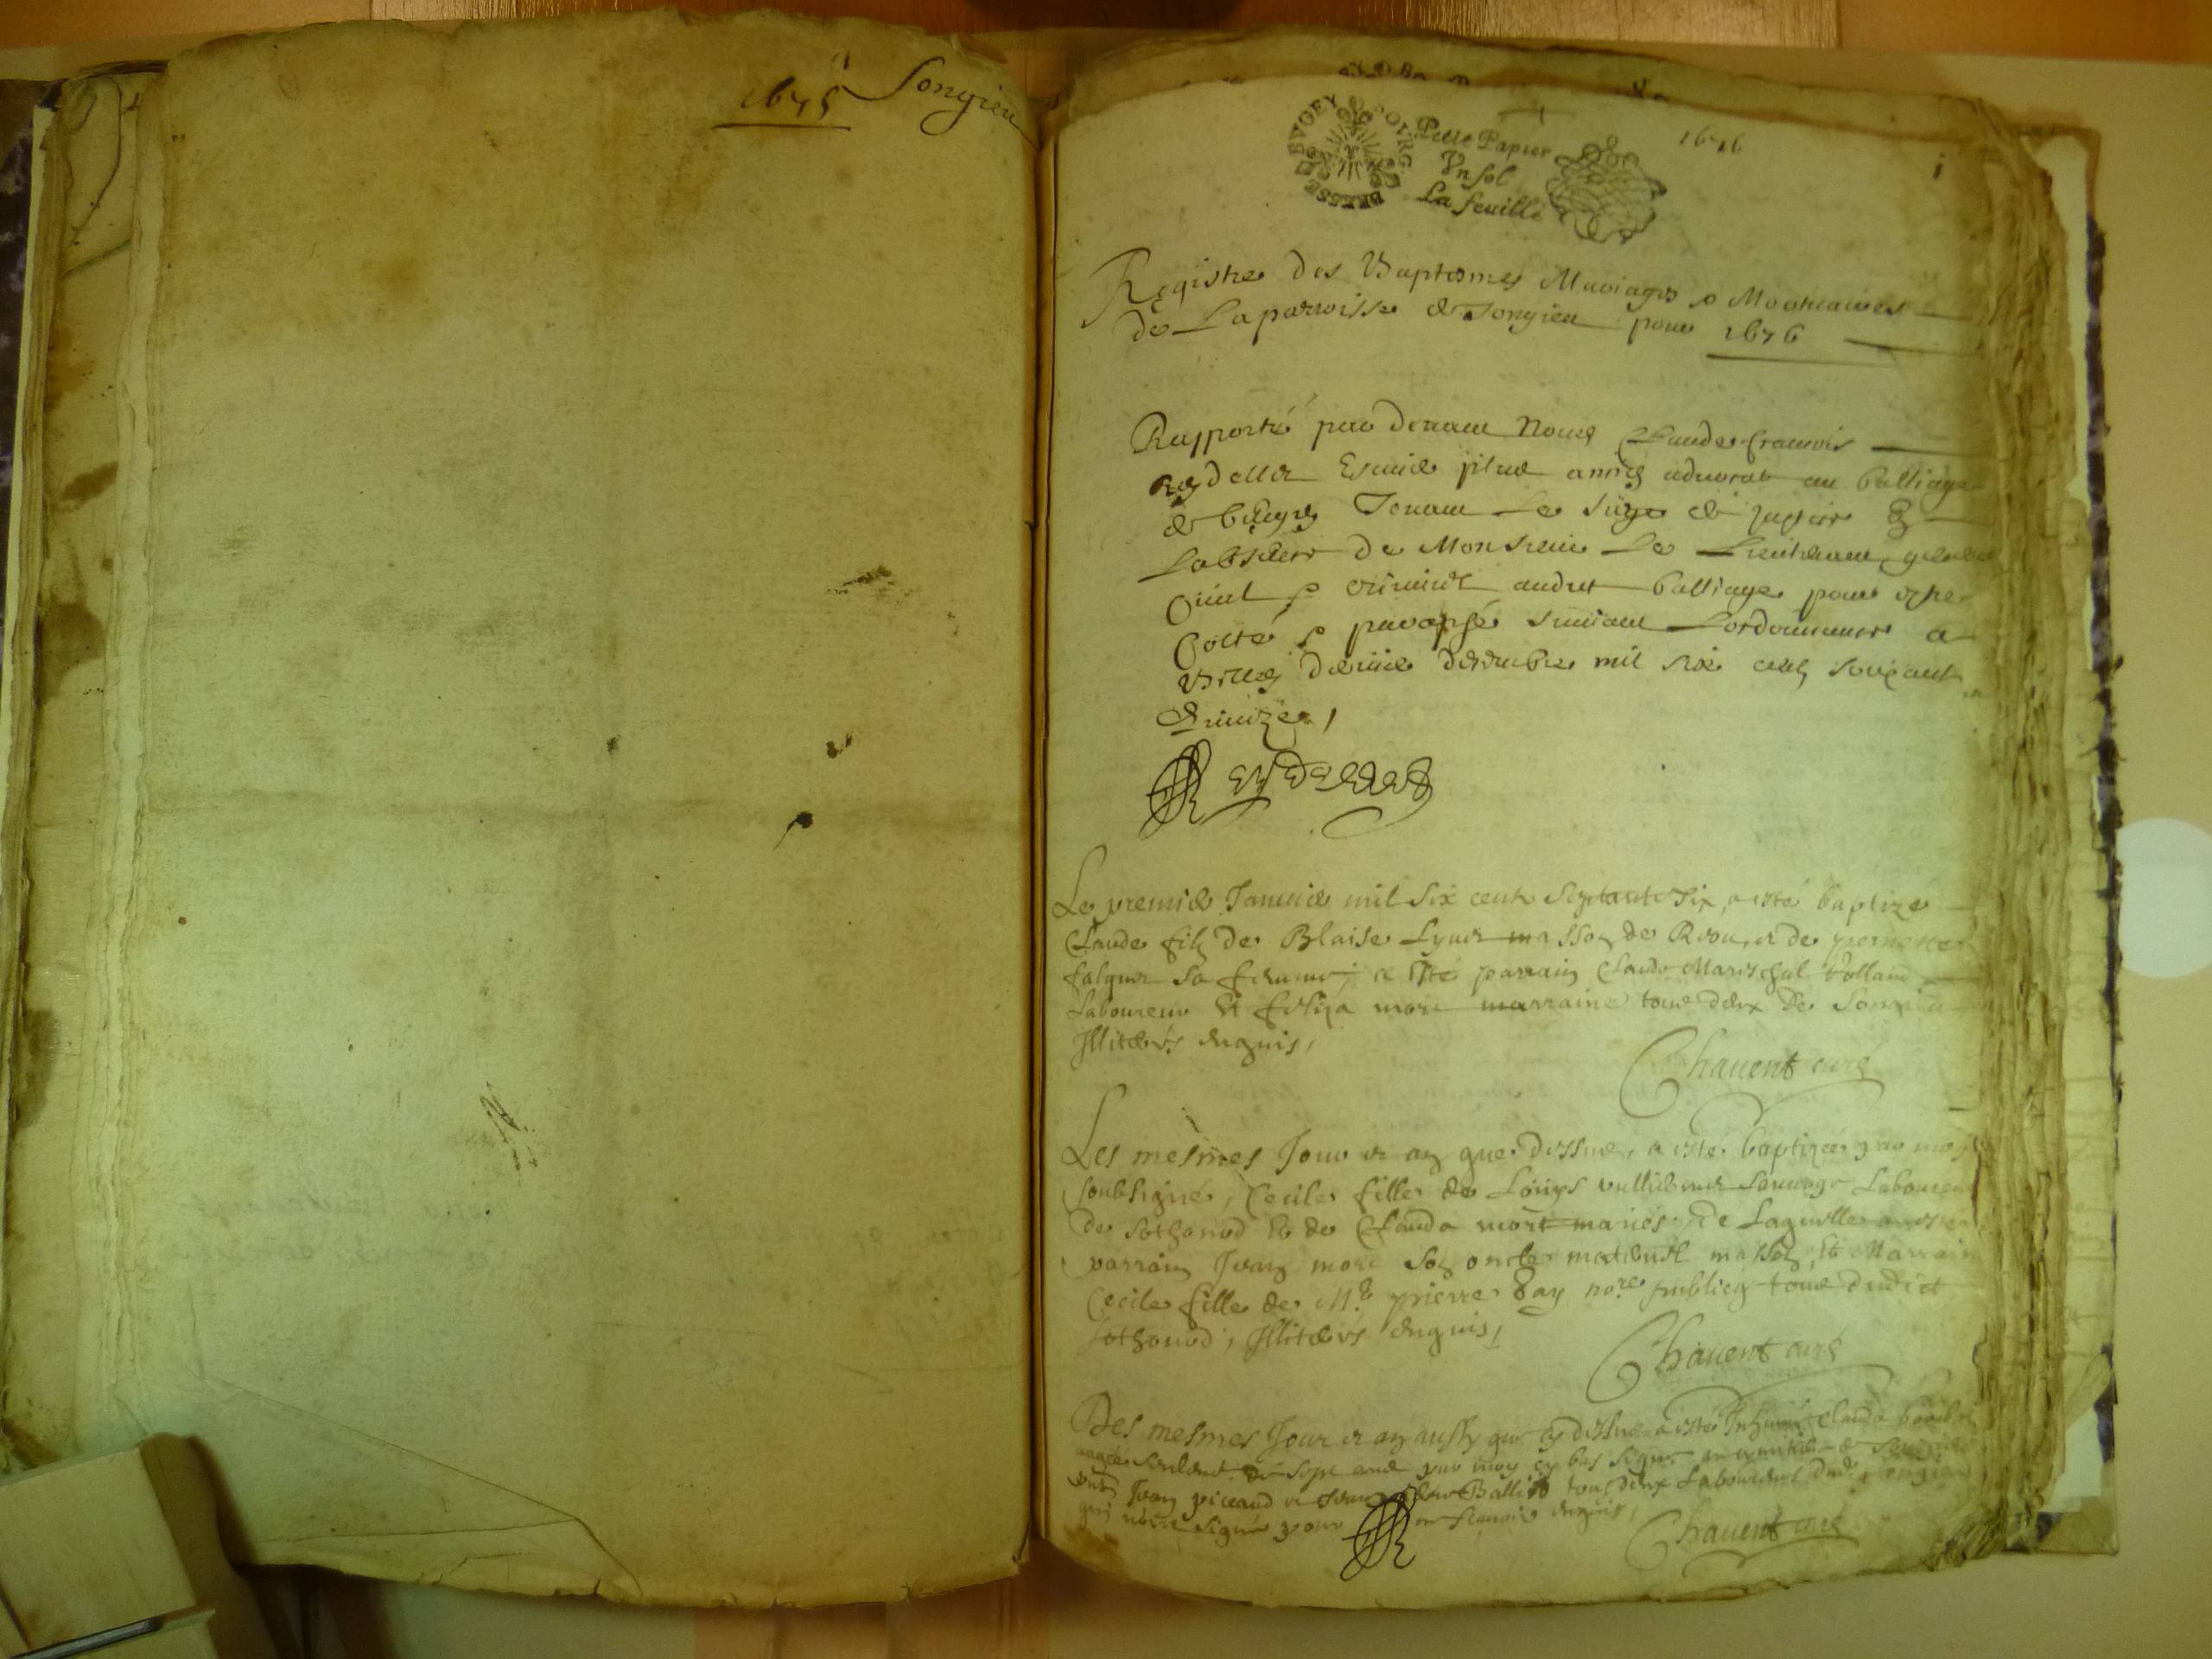 1675 Songieu
1676
BVGEY BOVRG BRESSE
Petit Papier
Vn sol
La feuille
i
Registre des Baptesmes Mariages & Mortuaires
de La parroisse de Songieu pour 1676
Rapporté par devant Nous Claude francois
Reydellet Escuier plus antien advocat au balliage
de beugey Tenant Le siege de justice En
Labscence de Monsieur Le Lieutenant general
Civil & criminel audit balliage pour estre
Cotté & paraphé suivant Lordonnance a
Belley décembre mil six cent soixante
quinze,
Reydellet
Le premier Janvier mil six cent septante six, a esté baptizé
Claude filz de Blaise masson de et de pernette
sa femme, a esté parrain Claude Marischal Rolland
Laboureur Et more marraine tous deux de Songieu
Illiterés enquis,
Chavent curé
Les mesmes Jour et an que dessus, a esté baptizée par moy
soubsigné, Cecile fille de Louys Laboureur
de Sothonod Et de Clauda more mariés, de Laquelle a esté
parrain Jean more son oncle maternel masson, Et Marraine
Cecile fille de Me pierre Day nore publicq tous dudict
Sothonod, Illiterés enquis,
Chavent curé
Des mesmes Jour et an aussy que cy dessus a esté Inhumé Clauda
aagée seulement de sept ans par moy cy bas signé
Jean picaud et Jean Ballid tous deux Laboureurs dud. Songieu
qui n'ont signé pour ne scavoir enquis,
Chavent curé